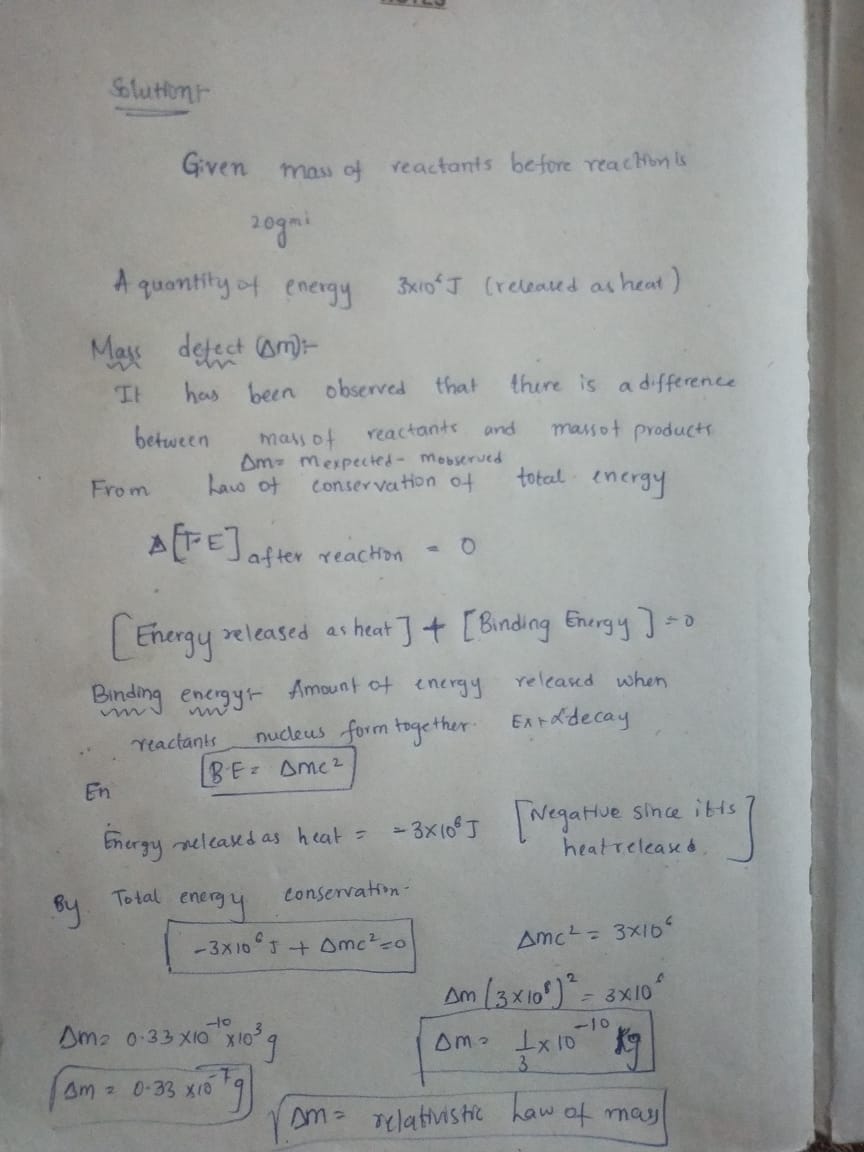 NOTES
Solution:-
Given mass of reactants before reaction is
20gm;
A quantity of energy 3x10⁶ J (released as heat)
Mass defect (Δm):-
It has been observed that there is a difference
between mass of reactants and mass of products
Δm= mexpected - mobserved
From Law of conservation of total energy
Δ[T·E] after reaction = 0
[Energy released as heat] + [Binding Energy] = 0
Binding energy:- Amount of energy released when
reactants nucleus form together. Ex:- α decay
B·E = Δmc²
En
Energy released as heat = -3×10⁶ J [Negative since it is heat released.]
By Total energy conservation-
-3×10⁶ J + Δmc²=0
Δmc² = 3×10⁶
Δm (3×10⁸)² = 3×10⁶
Δm= 1/3 x 10⁻¹⁰ kg
Δm= 0.33 x10⁻¹⁰ x10³ g
Δm = 0.33 x10⁻⁷ g
Δm = relativistic Law of mass